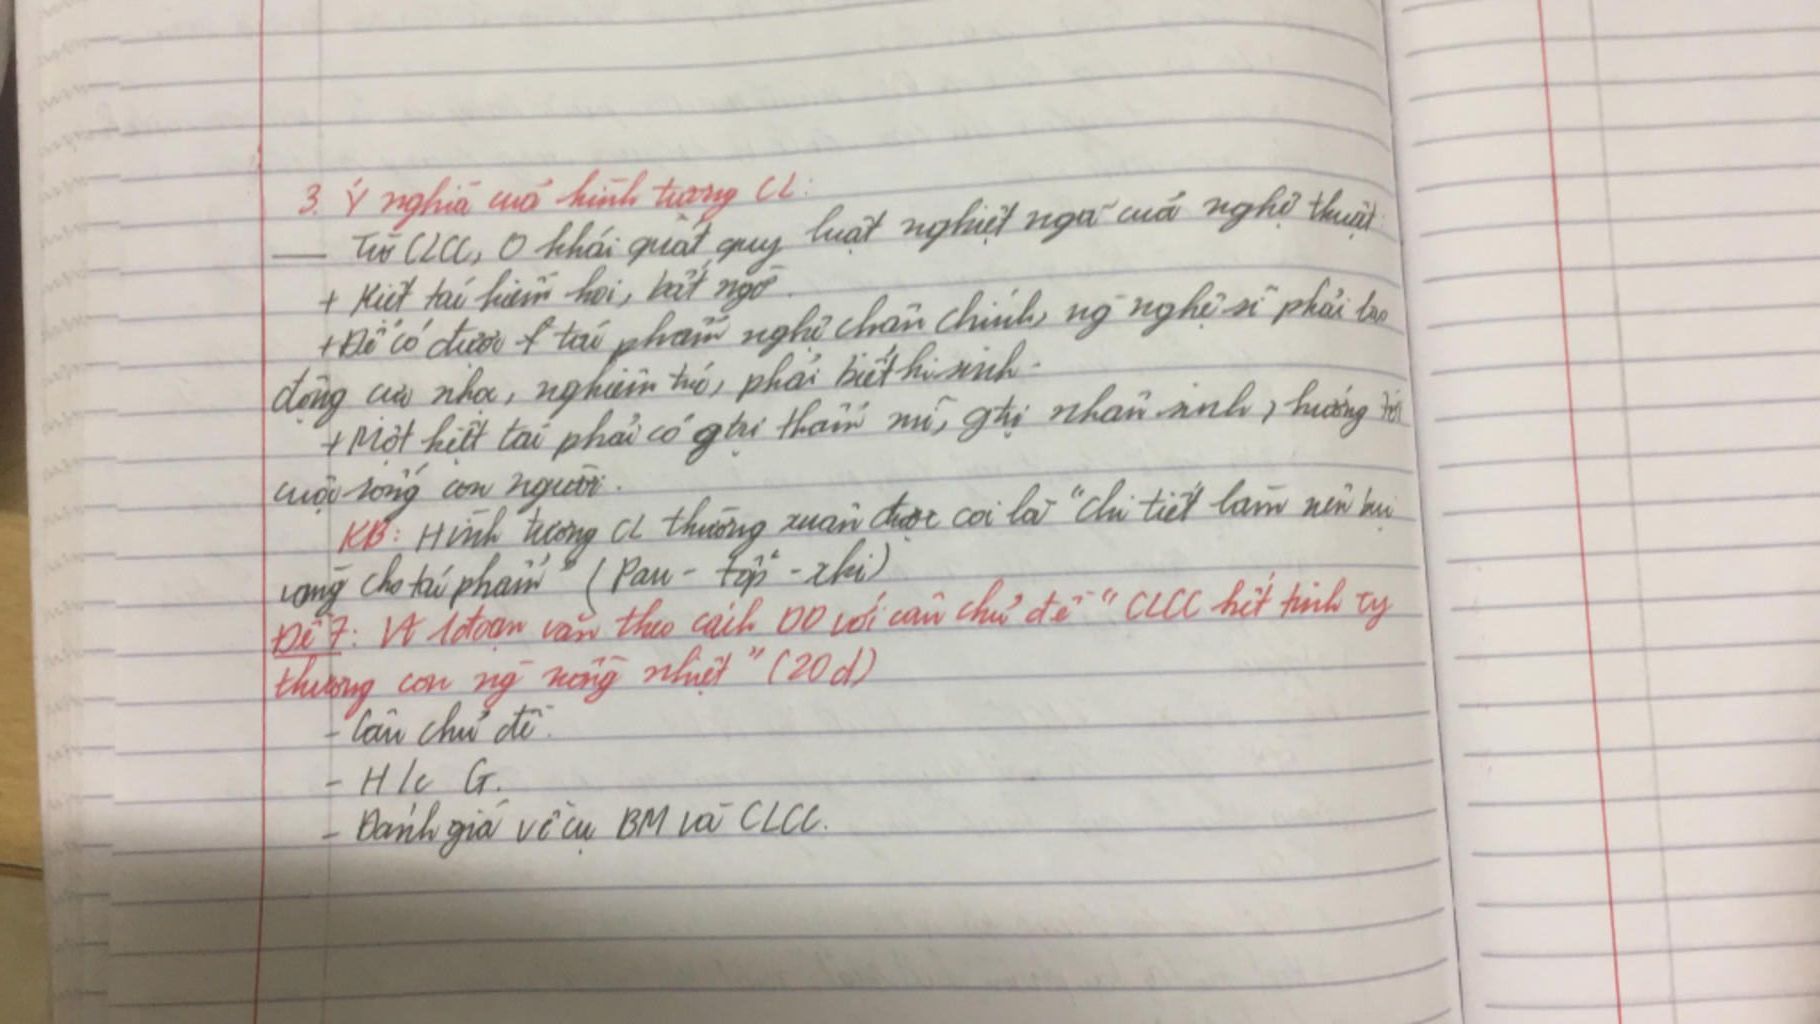 3. Ý nghĩa của hình tượng CL:
— Từ CLCC, O khái quát quy luật nghiệt ngã của nghệ thuật:
+ Kiệt tác hiếm hoi, bất ngờ.
+ Để có được 1 tác phẩm nghệ chân chính, ng nghệ sĩ phải lao
động cực nhọc, nghiêm túc, phải biết hi sinh.
+ Một kiệt tác phải có gtrị thẩm mĩ, gtrị nhân sinh, hướng tới
cuộc sống con người.
KB: Hình tượng CL thường xuân được coi là "chi tiết làm nên bụi
vàng cho tác phẩm" (Pau - tốp - xki)
Đề 7: Vt 1 đoạn văn theo cách DD với câu chủ đề "CLCC kết tinh ty
thương con ng nồng nhiệt" (20 d)
- Câu chủ đề.
- H/c G.
- Đánh giá về cụ BM và CLCC.